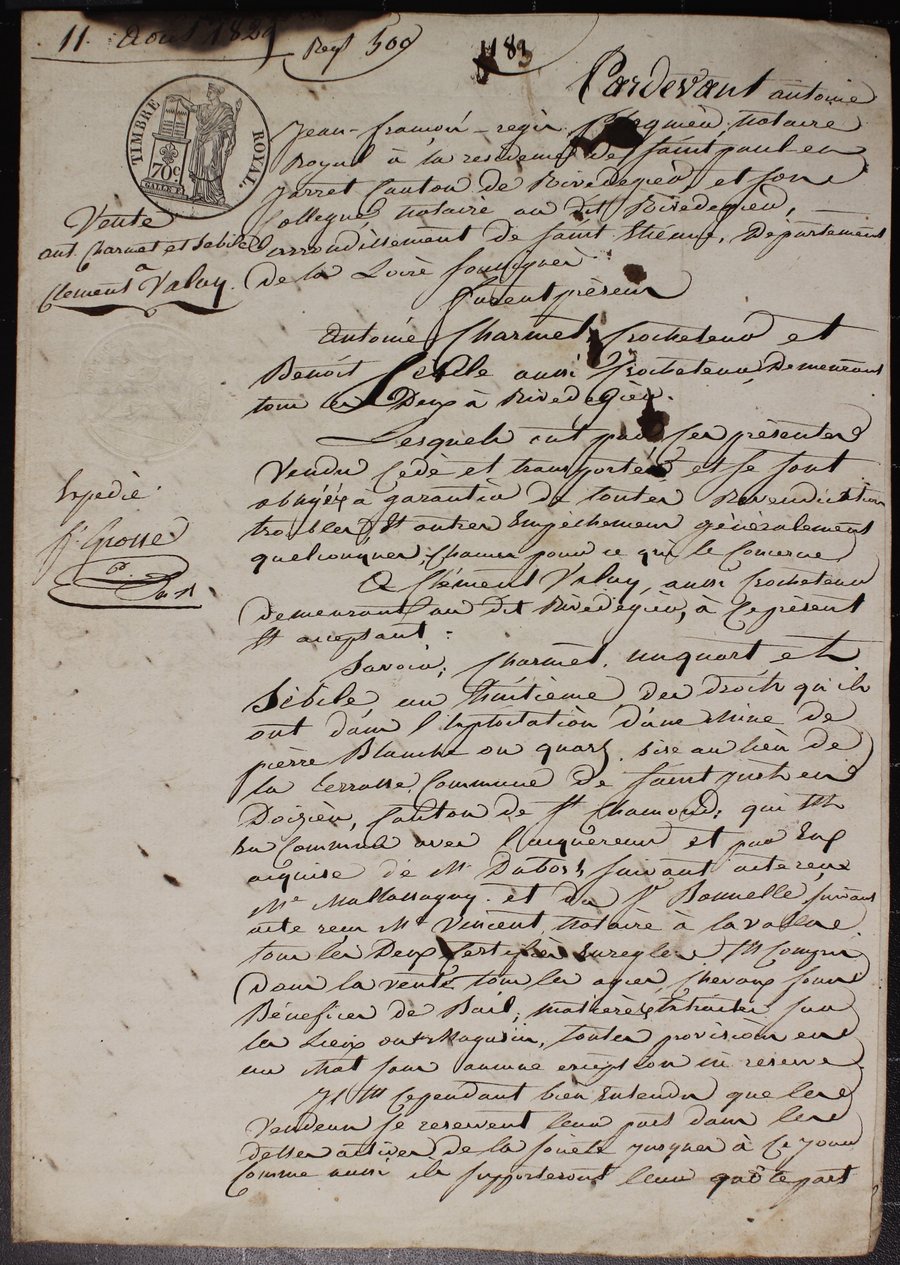 11. Août 1829
Regt 500
1183
TIMBRE ROYAL.
70c
Pardevant antoine
Jean-francois-regis notaire
Royal à la residence de saint paul en
jarret Canton de Rivedegier, et son
Collegue notaire au dit Rivedegier,
arrondissement de saint Etienne, Departement
de la Loire soussignés
Vente
ant Charmet et Sebile
a
Clement Valay.
furent présens
antoine Charmet, Crocheteur et
Benoit Sebille aussi Crocheteur, Demeurant
tous les Deux à Rivedegier.
Lesquels ont par Ces présentes
Vendu Cédé et transporté, et se sont
obligés a garantir de toutes Revendication
troubles, Et autres Empêchemens généralement
quelconques, Chacun pour ce qui le Concerne
Expedié
Gme Grosse
A Clément Valay, aussi Crocheteur
demeurant au Dit Rivedegier, à Ce présent
Et acceptant:
Savoir; Charmet, un quart, et
Sébile un huitième des droits qu'ils
ont dans l'Exploitation d'une Mine de
pièrre Blanche ou quarz, sise au lieu de
la terrasse, Commune de Saint just en
Doizieu, Canton de St Chamond; qui Est
En Commun avec l'acquereur et par Eux
acquise de Mr Dubost, suivant acte reçu
Me Mallassagny. et du Sr Bonnelle, suivant
acte reçu Me Vincent, Notaire à lavalla
tous les Deux Est Compris
dans la vente tous les agiers, Chevaux fours
Bénéfices de Bail; matières Extraites sur
les Lieux ou Magasin, toutes provisions en
un Mot sans aucune exception ni reserve
Il est Cependant bien Entendu que les
Vendeurs se reservent leur part dans les
dettes actives de la société jusques à Ce jour
Comme aussi ils supporteront leur quôte part